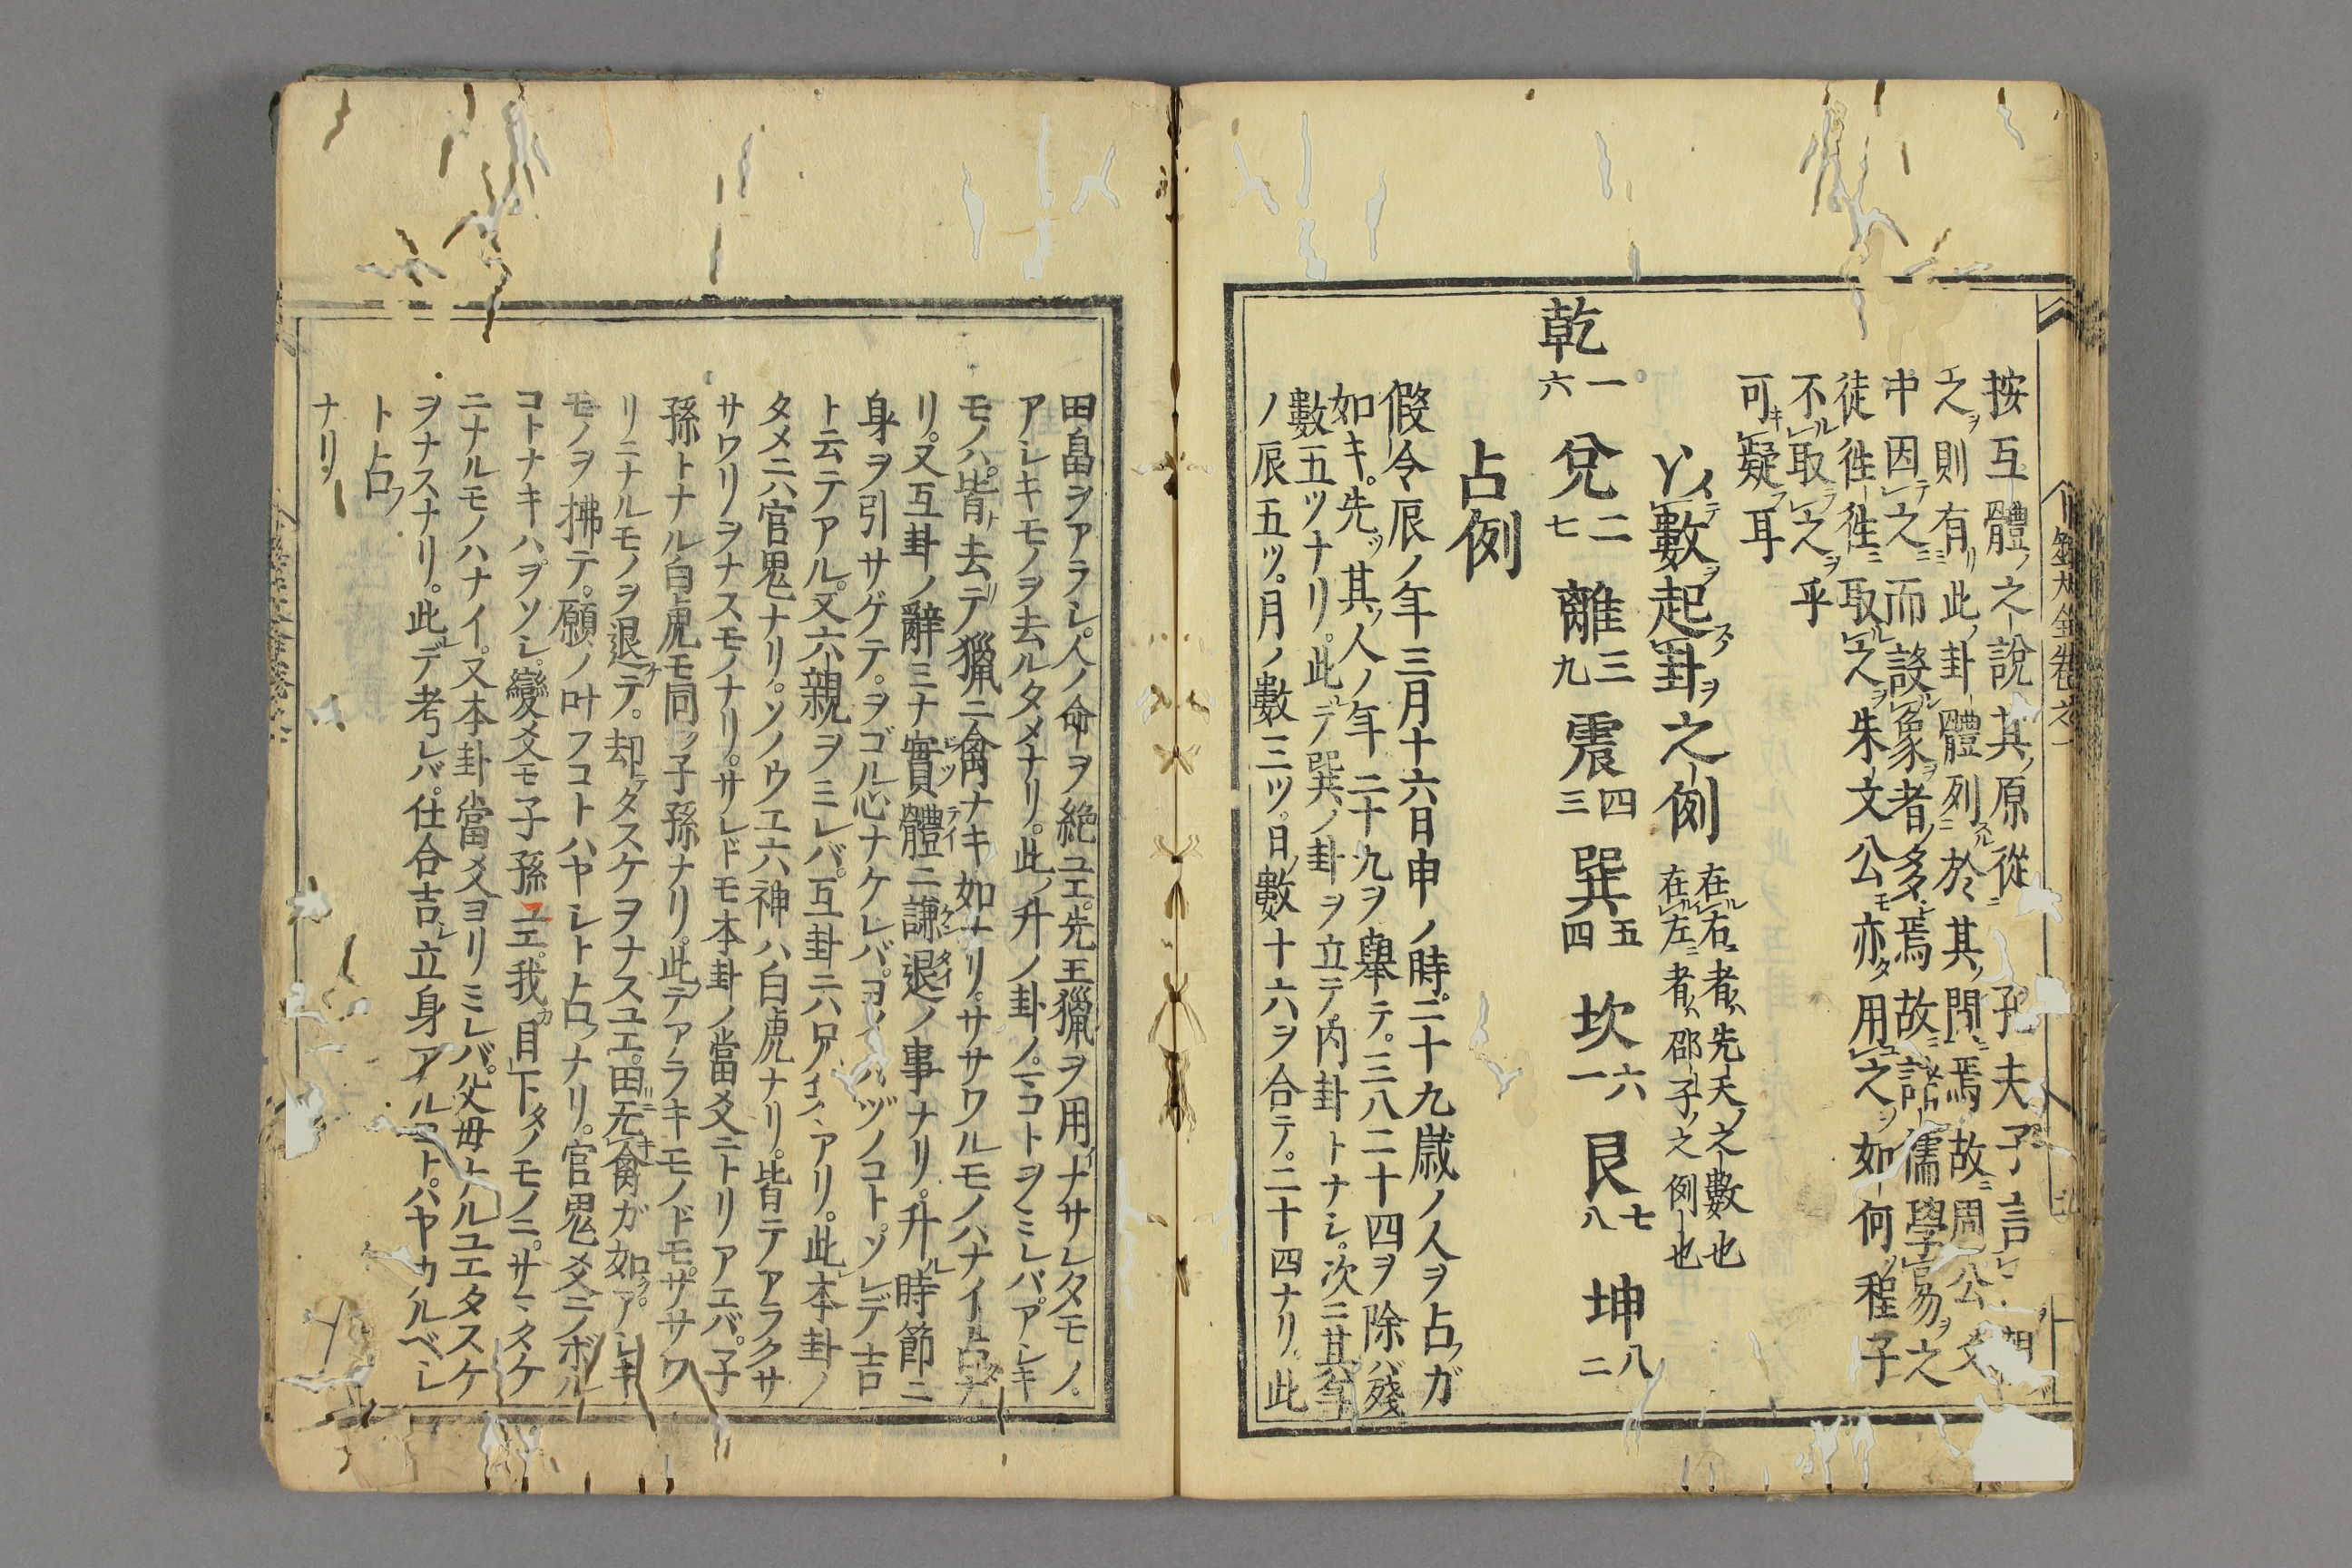 按互體ノ之說其ノ原從ニ孔夫子言
之ヲ則有リ此ノ卦體列スル於其ノ間ニ焉故ニ周公文
中因テ之ニ而設ル象ヲ者ノ多シ焉故ニ諸儒學易ヲ之
徒徃徃ニ取ル之ヲ朱文公モ亦タ用ユ之ヲ如何ソ程子
不ル取ラ之ヲ乎
可キ疑フ耳
以テ數ヲ起ス卦ヲ之例
在ル右ニ者ハ先天ノ之數也
在ル左ニ者ハ邵子ノ之例也
乾一六 兌二七 離三九 震四三 巽五四 坎六一 艮七八 坤八二
占例
假令辰ノ年三月十六日申ノ時二十九歳ノ人ヲ占フガ
如キ先ツ其ノ人ノ年二十九ヲ舉テ三八二十四ヲ除バ殘
數五ツナリ此ニテ巽ノ卦ヲ立テ内卦トナシ次ニ其年
ノ辰五ツ月ノ數三ツ日ノ數十六ヲ合テ二十四ナリ此
田畠ヲアラシ人ノ命ヲ絶ユエ先王獵ヲ用イナサレタモノ
アシキモノヲ去ルタメナリ此ノ升ノ卦ノコトヲミレバアシキ
モノハ皆ナ去リテ獵ニ禽ナキ如ナリササワルモノハナイト占ナ
リ又互卦ノ辭ミナ實體ニ謙退ノ事ナリ升ル時節ニ
身ヲ引サゲテヲゴル心ナケレバヨイハヅノコトソレデ吉
ト云テアル又六親ヲミレバ互卦ニハ兄弟アリ此レ本卦ノ
タメニハ官鬼ナリソノウエ六神ハ白虎ナリ皆テアラクサ
サワリヲナスモノナリサレドモ本卦ノ當爻ニトリアエバ子
孫トナル白虎モ同ツ子孫ナリ此テアラキモノドモササワ
リニナルモノヲ退ケテ却テタスケヲナスユエ田ニ无キ禽ガ如クアシキ
モノヲ拂テ願ノ叶フコトハヤシト占フナリ官鬼爻ニノボル
コトナキハヲソシ變爻モ子孫ユエ我カ目下タノモノニササタケ
ニナルモノハナイ又本卦當爻ヨリミレバ父母トルユエタスケ
ヲナスナリ此ニテ考レバ仕合吉シ立身アルコトハヤカルベシ
ト占フ
ナリ